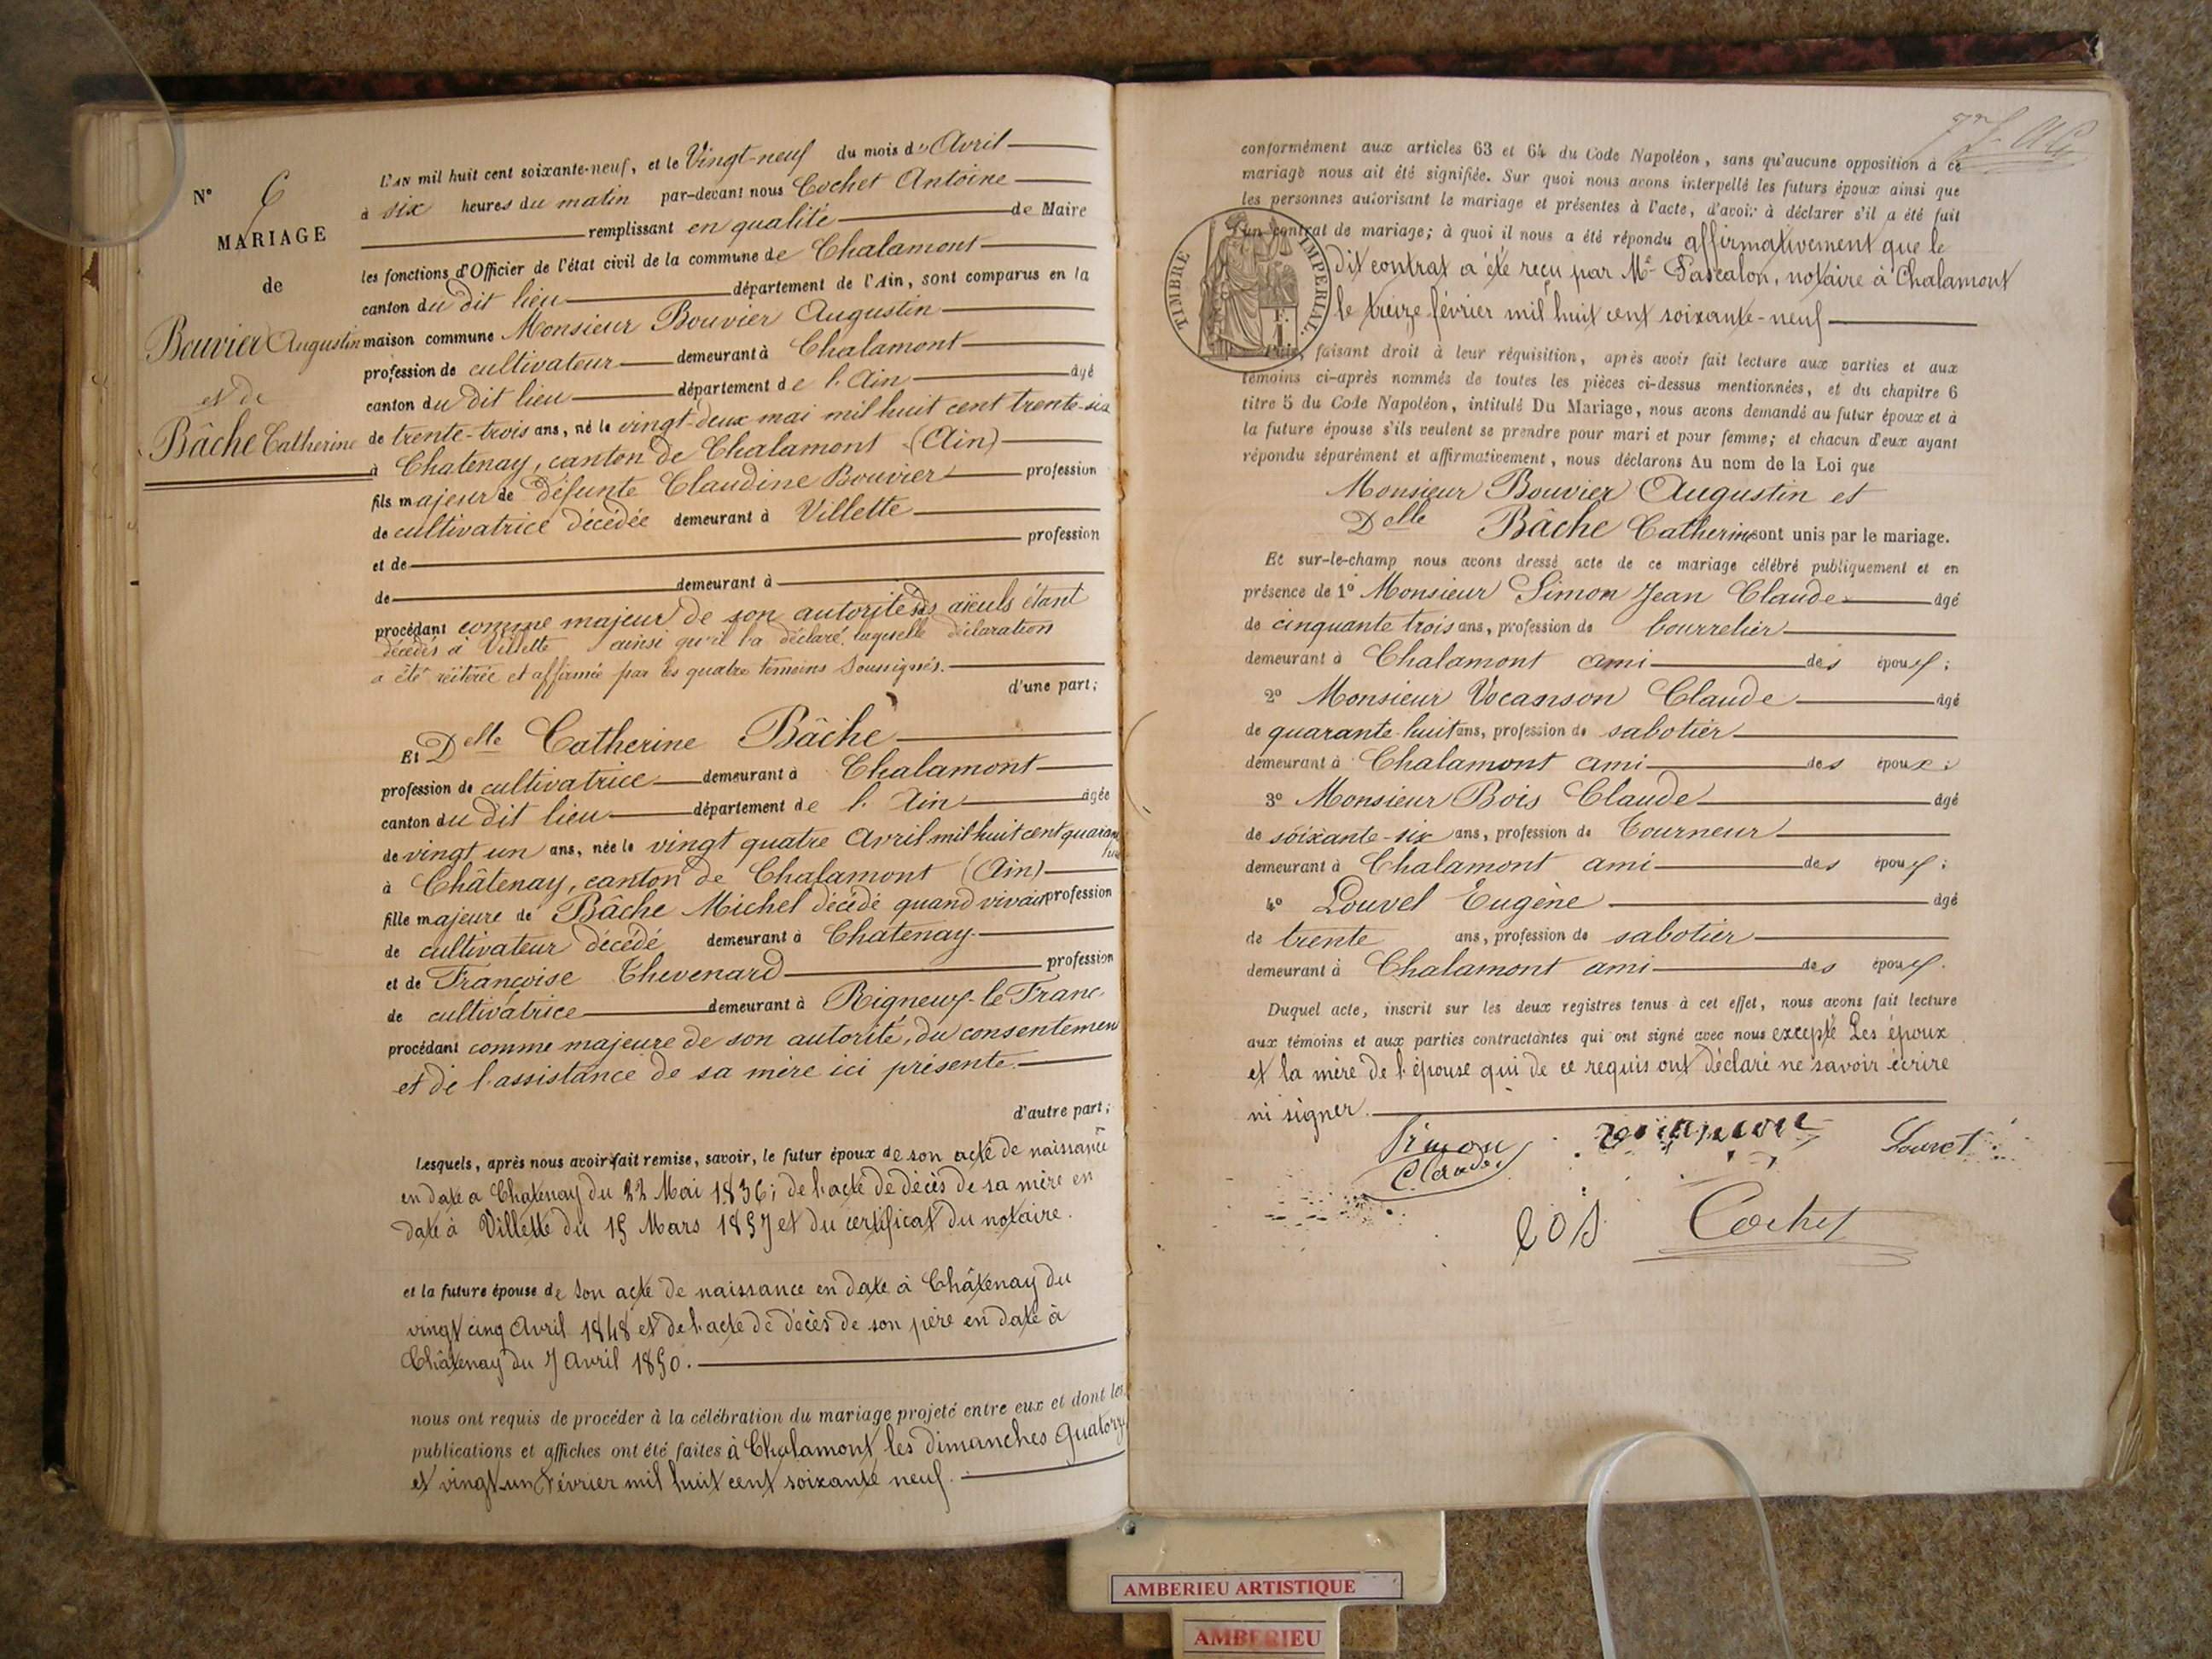 N° 6
MARIAGE
de
Bouvier Augustin
et de
Bâche Catherine
L'AN mil huit cent soixante-neuf, et le Vingt-neuf du mois d'Avril
à six heures du matin par-devant nous Cochet Antoine
remplissant en qualité de Maire
les fonctions d'Officier de l'état civil de la commune de Chalamont
canton du dit lieu département de l'Ain, sont comparus en la
maison commune Monsieur Bouvier Augustin
profession de cultivateur demeurant à Chalamont
canton du dit lieu département de l'Ain âgé
de trente-trois ans, né le vingt-deux mai mil huit cent trente-six
à Chatenay, canton de Chalamont (Ain)
fils majeur de défunte Claudine Bouvier profession
de cultivatrice décédée demeurant à Villette
et de profession
de demeurant à
procédant comme majeur de son autorité ses aïeuls étant
décédés à Villette ainsi qu'il l'a déclaré laquelle déclaration
a été réitérée et affirmée par les quatre témoins soussignés.
d'une part;
Et Delle Catherine Bâche
profession de cultivatrice demeurant à Chalamont
canton du dit lieu département de l'Ain âgée
de vingt un ans, née le vingt quatre Avril mil huit cent quarante
huit
à Châtenay, canton de Chalamont (Ain)
fille majeure de Bâche Michel décédé quand vivait profession
de cultivateur décédé demeurant à Chatenay
et de Françoise Thevenard profession
de cultivatrice demeurant à Rigneux-le-Franc
procédant comme majeure de son autorité, du consentement
et de l'assistance de sa mère ici présente.
d'autre part;
Lesquels, après nous avoir fait remise, savoir, le futur époux de son acte de naissance
en date a Chatenay du 22 Mai 1836; de l'acte de décès de sa mère en
date à Villette du 15 Mars 1857 et du certificat du notaire.
et la future épouse de son acte de naissance en date à Châtenay du
vingt cinq Avril 1848 et de l'acte de décès de son père en date à
Châtenay du 7 Avril 1850.
nous ont requis de procéder à la célébration du mariage projeté entre eux et dont les
publications et affiches ont été faites à Chalamont les dimanches Quatorze
et vingt-un Février mil huit cent soixante neuf.
conformément aux articles 63 et 64 du Code Napoléon, sans qu'aucune opposition à ce
mariage nous ait été signifiée. Sur quoi nous avons interpellé les futurs époux ainsi que
les personnes autorisant le mariage et présentes à l'acte, d'avoir à déclarer s'il a été fait
un contrat de mariage; à quoi il nous a été répondu affirmativement que le
dit contrat a été reçu par Me Pascalon, notaire à Chalamont
le treize février mil huit cent soixante-neuf
TIMBRE IMPÉRIAL
Puis, faisant droit à leur réquisition, après avoir fait lecture aux parties et aux
témoins ci-après nommés de toutes les pièces ci-dessus mentionnées, et du chapitre 6
titre 5 du Code Napoléon, intitulé Du Mariage, nous avons demandé au futur époux et à
la future épouse s'ils veulent se prendre pour mari et pour femme; et chacun d'eux ayant
répondu séparément et affirmativement, nous déclarons Au nom de la Loi que
Monsieur Bouvier Augustin et
Delle Bâche Catherine sont unis par le mariage.
Et sur-le-champ nous avons dressé acte de ce mariage célébré publiquement et en
présence de 1° Monsieur Simon Jean Claude âgé
de cinquante trois ans, profession de bourrelier
demeurant à Chalamont ami des époux;
2° Monsieur Vocanson Claude âgé
de quarante-huit ans, profession de sabotier
demeurant à Chalamont ami des époux;
3° Monsieur Bois Claude âgé
de soixante-six ans, profession de Tourneur
demeurant à Chalamont ami des époux;
4° Louvel Eugène âgé
de trente ans, profession de sabotier
demeurant à Chalamont ami des époux.
Duquel acte, inscrit sur les deux registres tenus à cet effet, nous avons fait lecture
aux témoins et aux parties contractantes qui ont signé avec nous excepté Les époux
et la mère de l'épouse qui de ce requis ont déclaré ne savoir écrire
ni signer.
Simon
Claude
Cochet
AMBERIEU ARTISTIQUE
AMBERIEU